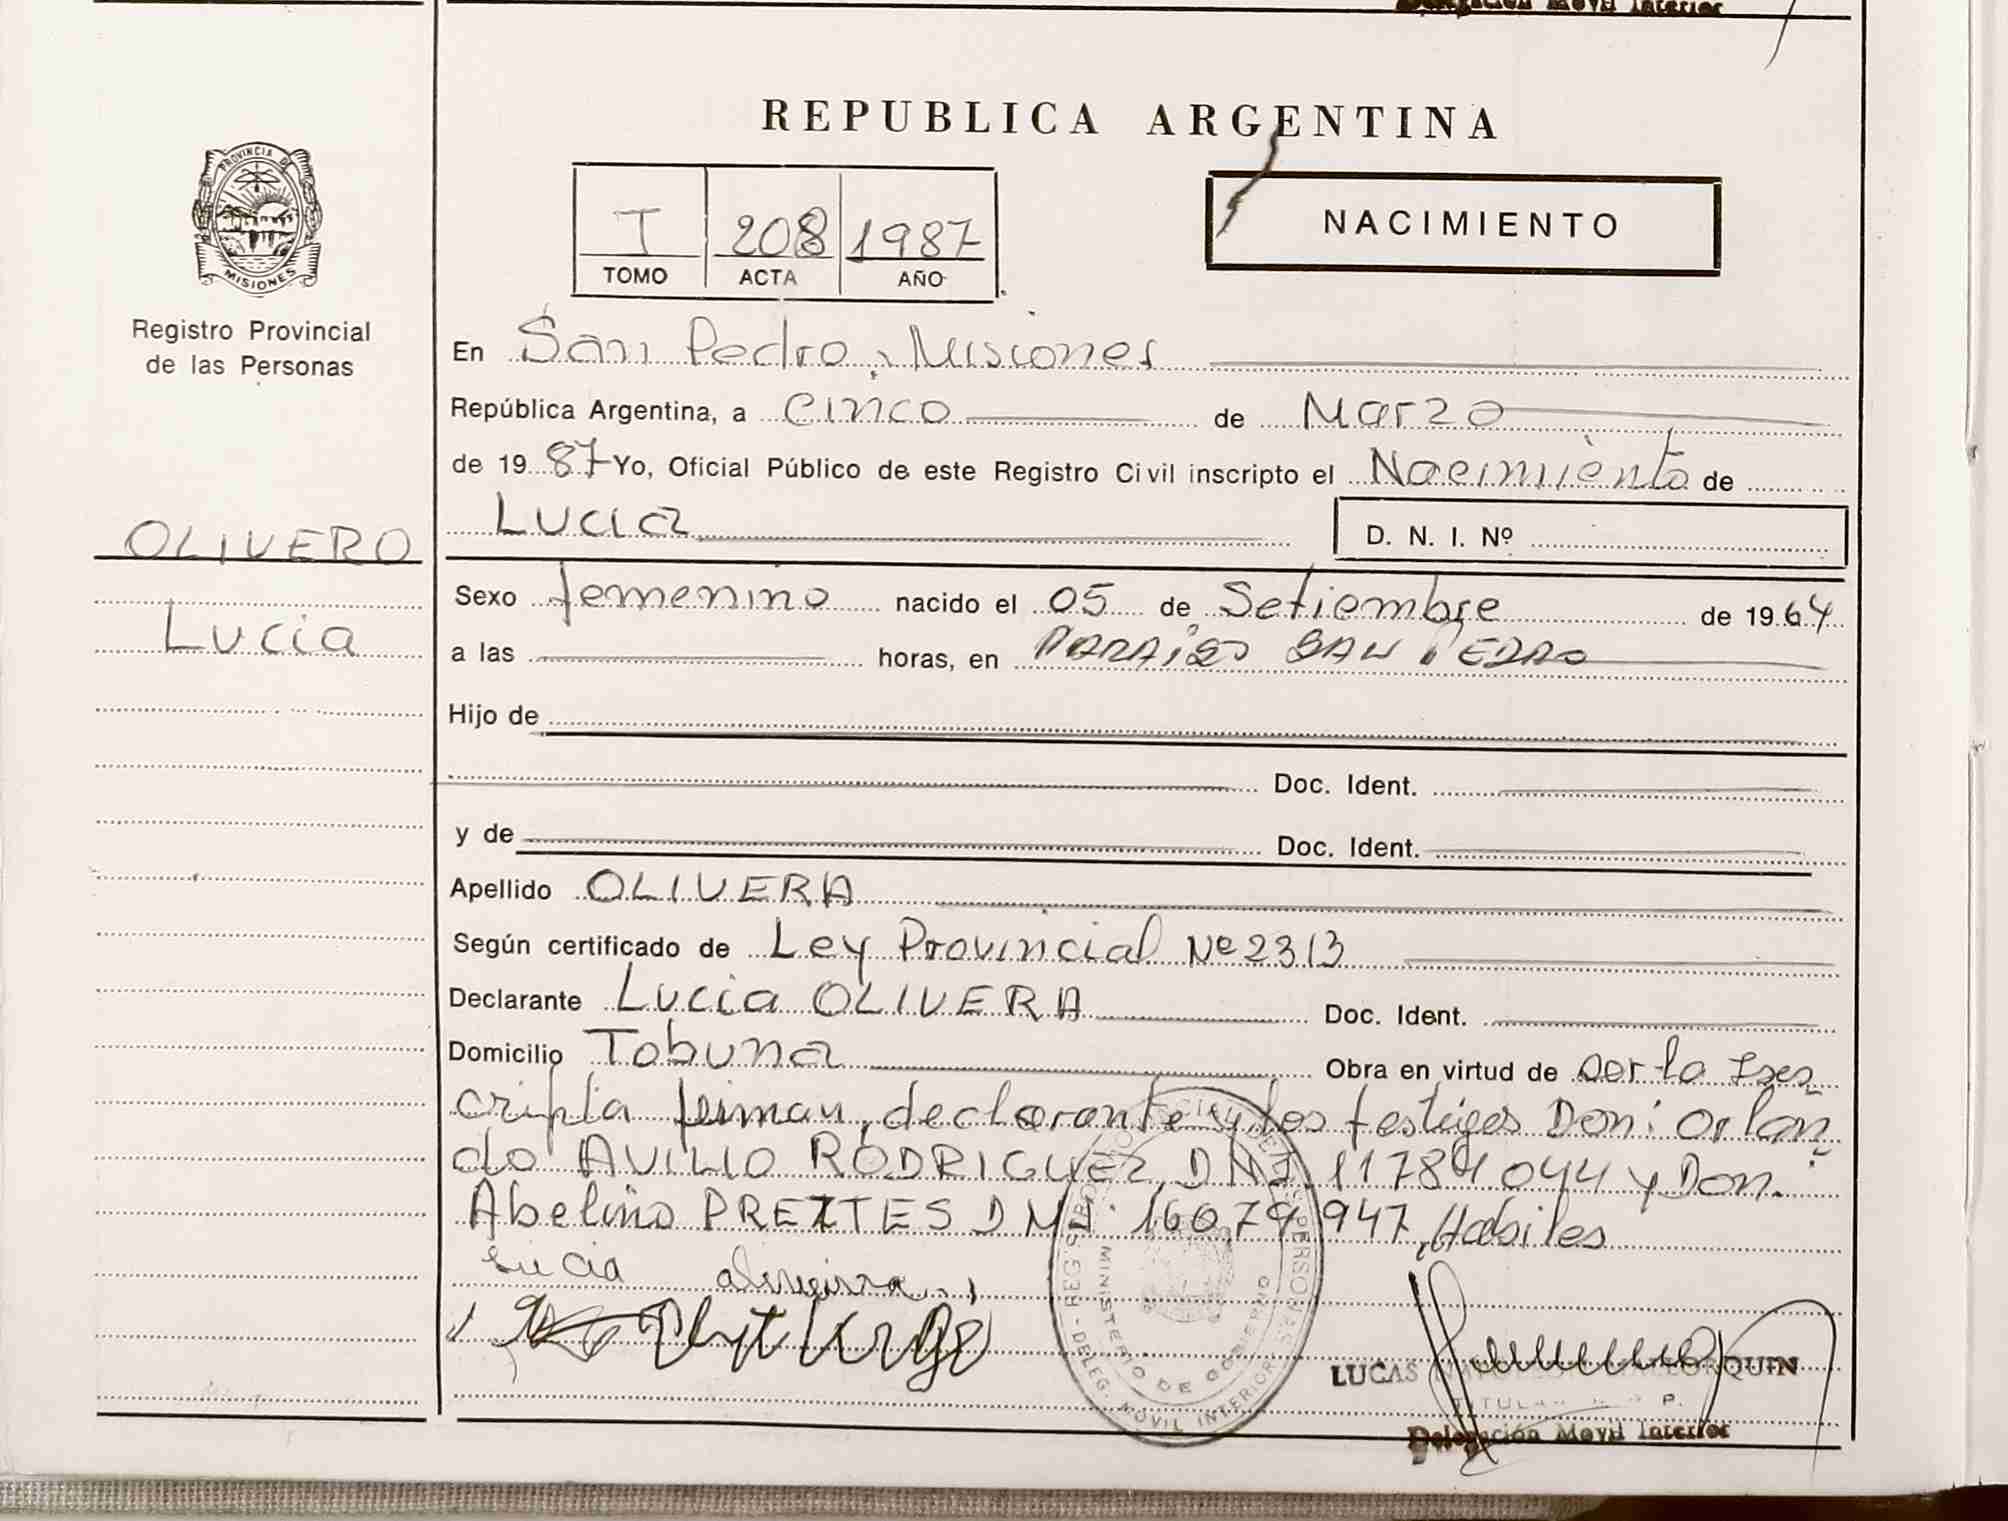 Delegación Movil Interior
REPUBLICA ARGENTINA
PROVINCIA DE
MISIONES
Registro Provincial
de las Personas
I 208 1987
TOMO ACTA AÑO
NACIMIENTO
En San Pedro, Misiones
República Argentina, a Cinco de Marzo
de 19 87 Yo, Oficial Público de este Registro Civil inscripto el Nacimiento de
Lucia D. N. I. Nº
OLIVERO
Lucia
Sexo femenino nacido el 05 de Setiembre de 19 64
a las horas, en PARAISO SAN PEDRO
Hijo de
Doc. Ident.
y de Doc. Ident.
Apellido OLIVERA
Según certificado de Ley Provincial Nº 2313
Declarante Lucia OLIVERA Doc. Ident.
Domicilio Tobuna Obra en virtud de ser la
cripta firman, declarante y los testigos Don: Orlan
do AVILIO RODRIGUEZ, DNI. 11784044 y Don.
Abelino PRETTES DNI. 16079947, Habiles
Lucia
REGISTRO PROVINCIAL DE LAS PERSONAS
MINISTERIO DE GOBIERNO
DELEG. MOVIL INTERIOR
LUCAS
Delegación Movil Interior